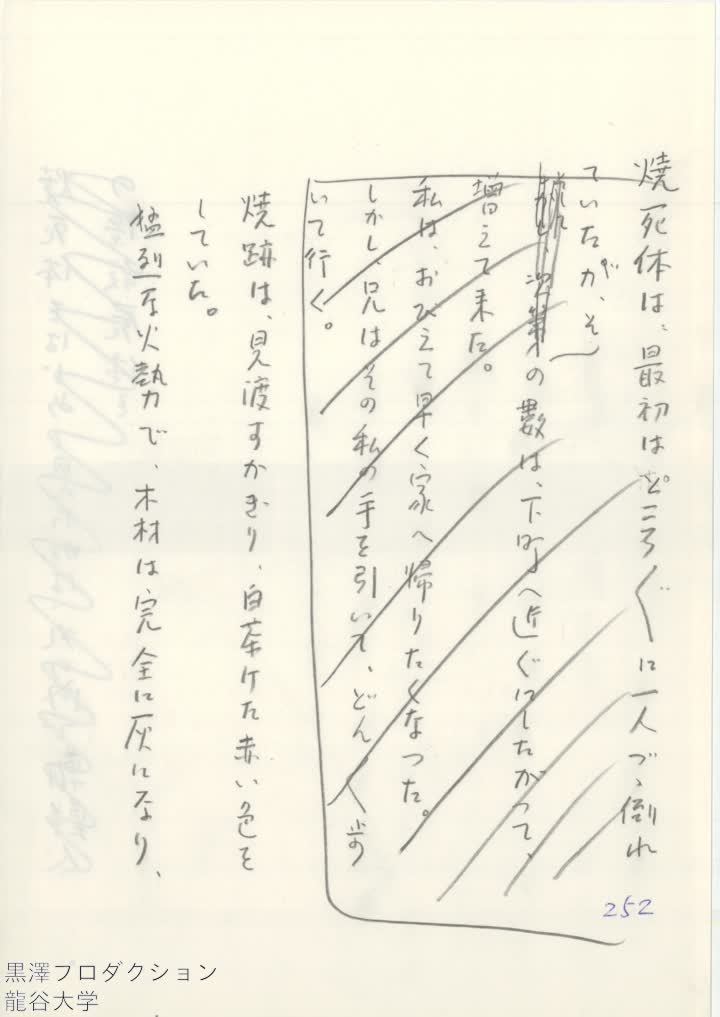 焼死体は、最初はところ〴〵に一人づゝ倒れ
ていたが、そ
の數は、下町へ近ずくにしたがつて、
増えて来た。
私は、おびえて早く家へ帰りたくなつた。
しかし、兄はその私の手を引いて、どん〳〵歩
いて行く。
焼跡は、見渡すかぎり、白茶けた赤い色を
していた。
猛烈な火勢で、木材は完全に灰になり、
252
黒澤プロダクション
龍谷大学